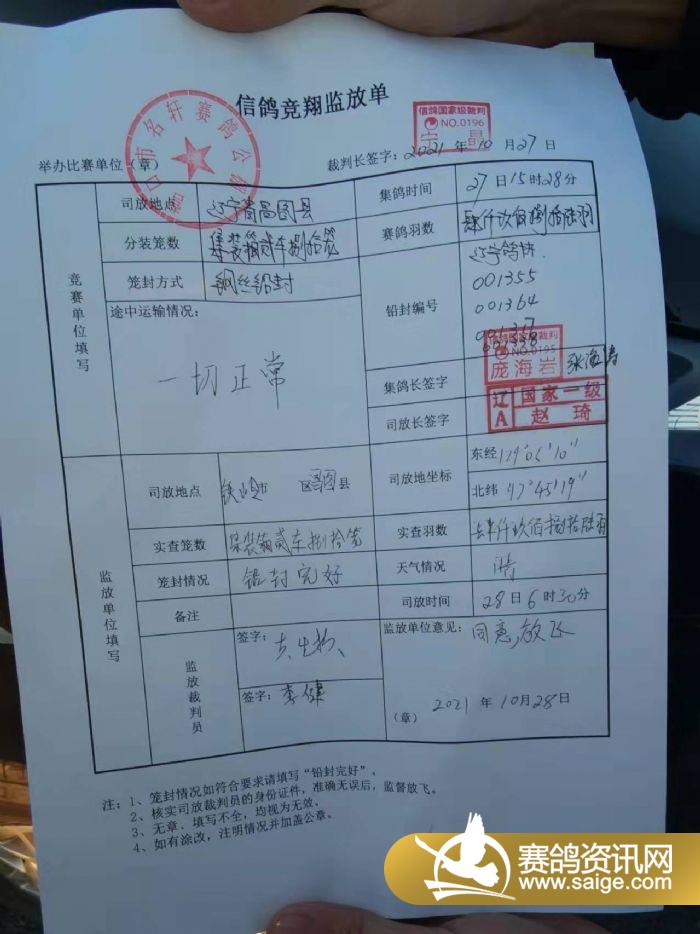 信鸽竞翔监放单
信鸽国家级裁判
NO.0196
口市名轩赛鸽公
举办比赛单位（章）
裁判长签字：
2021年10月27日
竞赛单位填写
司放地点
辽宁省昌图县
集鸽时间
27日15时28分
分装笼数
集装箱贰车捌拾笼
赛鸽羽数
肆仟玖佰捌拾陆羽
笼封方式
钢丝铅封
铅封编号
辽宁鸽协
001355
001364
途中运输情况：
一切正常
信鸽国家级裁判
NO.0195
庞海岩
集鸽长签字
张海涛
司放长签字
辽A
国家一级
赵琦
监放单位填写
司放地点
铁岭市 区昌图县
司放地坐标
东经
北纬
实查笼数
集装箱贰车捌拾笼
实查羽数
肆仟玖佰捌拾陆羽
笼封情况
铅封完好
天气情况
晴
备注
司放时间
28日6时30分
监放裁判员
签字：
签字：李健
监放单位意见：
同意，放飞
（章）
2021年10月28日
注：1、笼封情况如符合要求请填写“铅封完好”。
2、核实司放裁判员的身份证件，准确无误后，监督放飞。
3、无章、填写不全，均视为无效。
4、如有涂改，注明情况并加盖公章。
赛鸽资讯网
www.saige.com